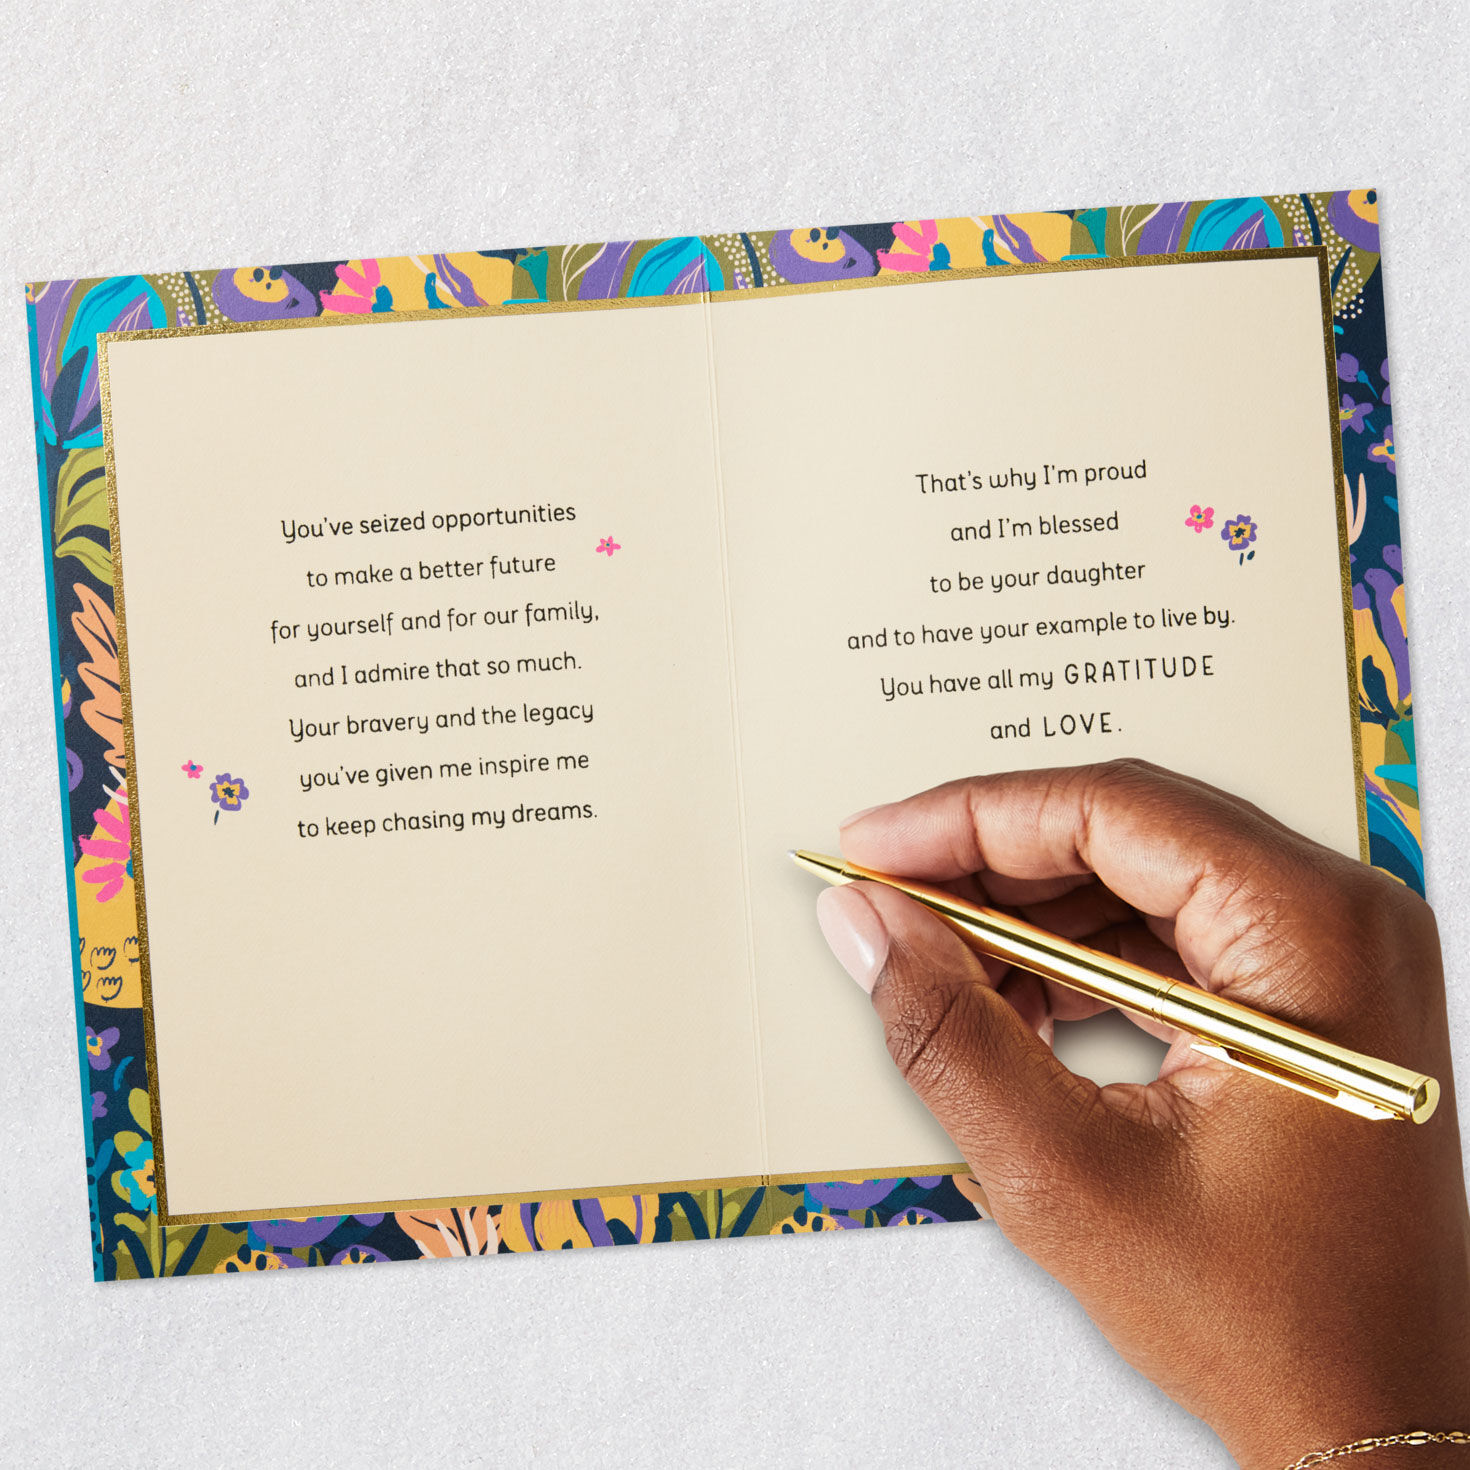 You've seized opportunities
to make a better future
for yourself and for our family,
and I admire that so much.
Your bravery and the legacy
you've given me inspire me
to keep chasing my dreams.
That's why I'm proud
and I'm blessed
to be your daughter
and to have your example to live by.
You have all my GRATITUDE
and LOVE.